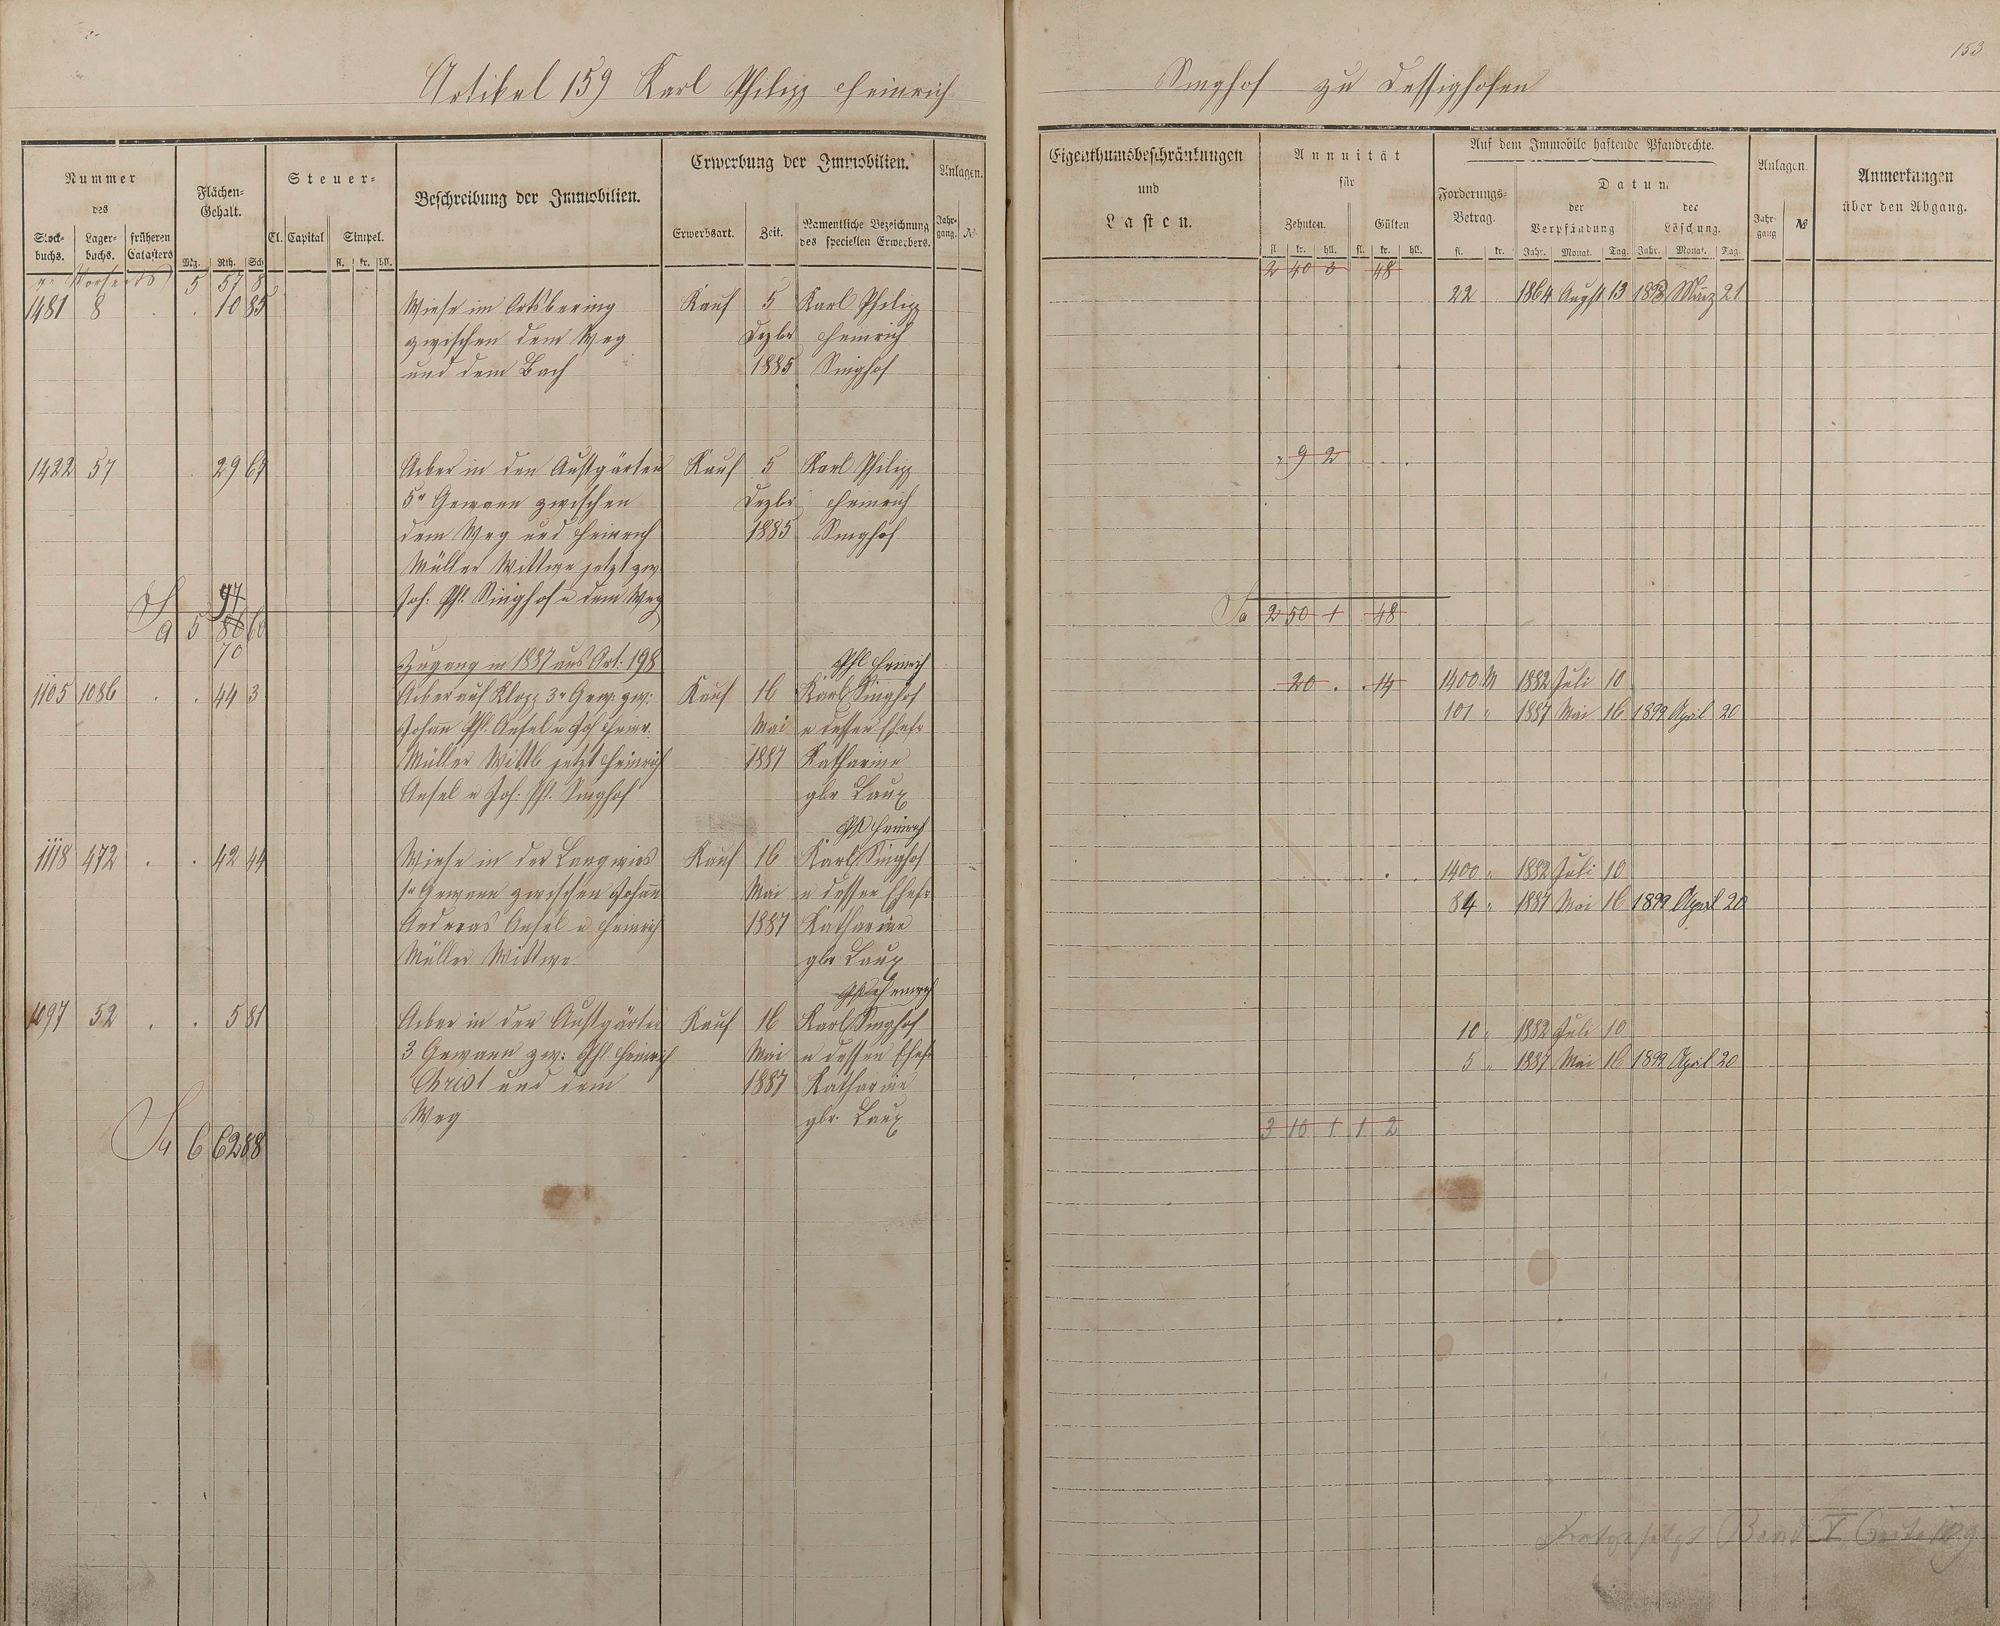 153
Artikel 159 Karl Philipp Heinrich
Singhof zu Dessighofen
Nummer
des
Stock-
buchs.
Lager-
buchs.
früheren
Catasters
Flächen-
Gehalt.
Mg. Rth. Sch
Steuer-
Cl. Capital Simpel.
fl. kr. hll.
Beschreibung der Immobilien.
Erwerbung der Immobilien.
Erwerbsart. Zeit. Namentliche Bezeichnung
des speciellen Erwerbers.
Anlagen.
Jahr-
gang. №
Eigenthumsbeschränkungen
und
Lasten.
Annuität
für
Zehnten. Gülten
fl. kr. hll. fl. kr. hll.
Auf dem Immobile haftende Pfandrechte.
Forderungs-
Betrag.
fl. kr.
Datum
der
Verpfändung
Jahr. Monat. Tag.
der
Löschung.
Jahr. Monat. Tag.
Anlagen.
Jahr-
gang №
Anmerkungen
über den Abgang.
5 57 8 2 40 3 48
1481 8 . . 10 85 Wiese im Ortsbering Kauf 5 Karl Philipp 22 1864 Augst 13 März 21
zwischen dem Weg Dezbr Heinrich
und dem Bach 1885 Singhof
1422 57 29 67 Acker in den Austgärten Kauf 5 Karl Philipp 9 2
5r Gewann zwischen Dezbr Heinrich
dem Weg und Heinrich 1885 Singhof
Müller Wittwe jetzt zw.
Joh. Phl. Singhof u dem Weg
97
Sa 5 86 60 Sa 2 50 1 48
70
Zugang in 1887 aus Art: 198 Phl Heinrich
1105 1086 . . 44 3 Acker auf Klopp 3r Gew. zw: Kauf 16 Karl Singhof 20 . 14 1400 M 1882 Juli 10
Johann Phl. Ansel u Joh Heinr. Mai u dessen Ehefr 101 " 1887 Mai 16 1899 April 20
Müller Wittb jetzt Heinrich 1887 Katharine
Ansel u Joh. Phl. Singhof gbr Laux
Phl Heinrich
1118 472 . . 42 44 Wiese in der Langwies Kauf 16 Karl Singhof 1400 " 1882 Juli 10
1r Gewann zwischen Johann Mai u dessen Ehefr 84 " 1887 Mai 16 1899 April 20
Andreas Ansel u Heinrich 1887 Katharine
Müller Wittwe gbr Laux
Phl Heinrich
1097 52 . . 5 81 Acker in den Austgärten Kauf 16 Karl Singhof 10 " 1882 Juli 10
3 Gewann zw: Phl. Heinrich Mai u dessen Ehefr 5 " 1887 Mai 16 1899 April 20
Christ und dem 1887 Katharine
Weg gbr. Laux
Sa 6 62 88 3 10 1 1 2
Fortgesetzt Band I Seite